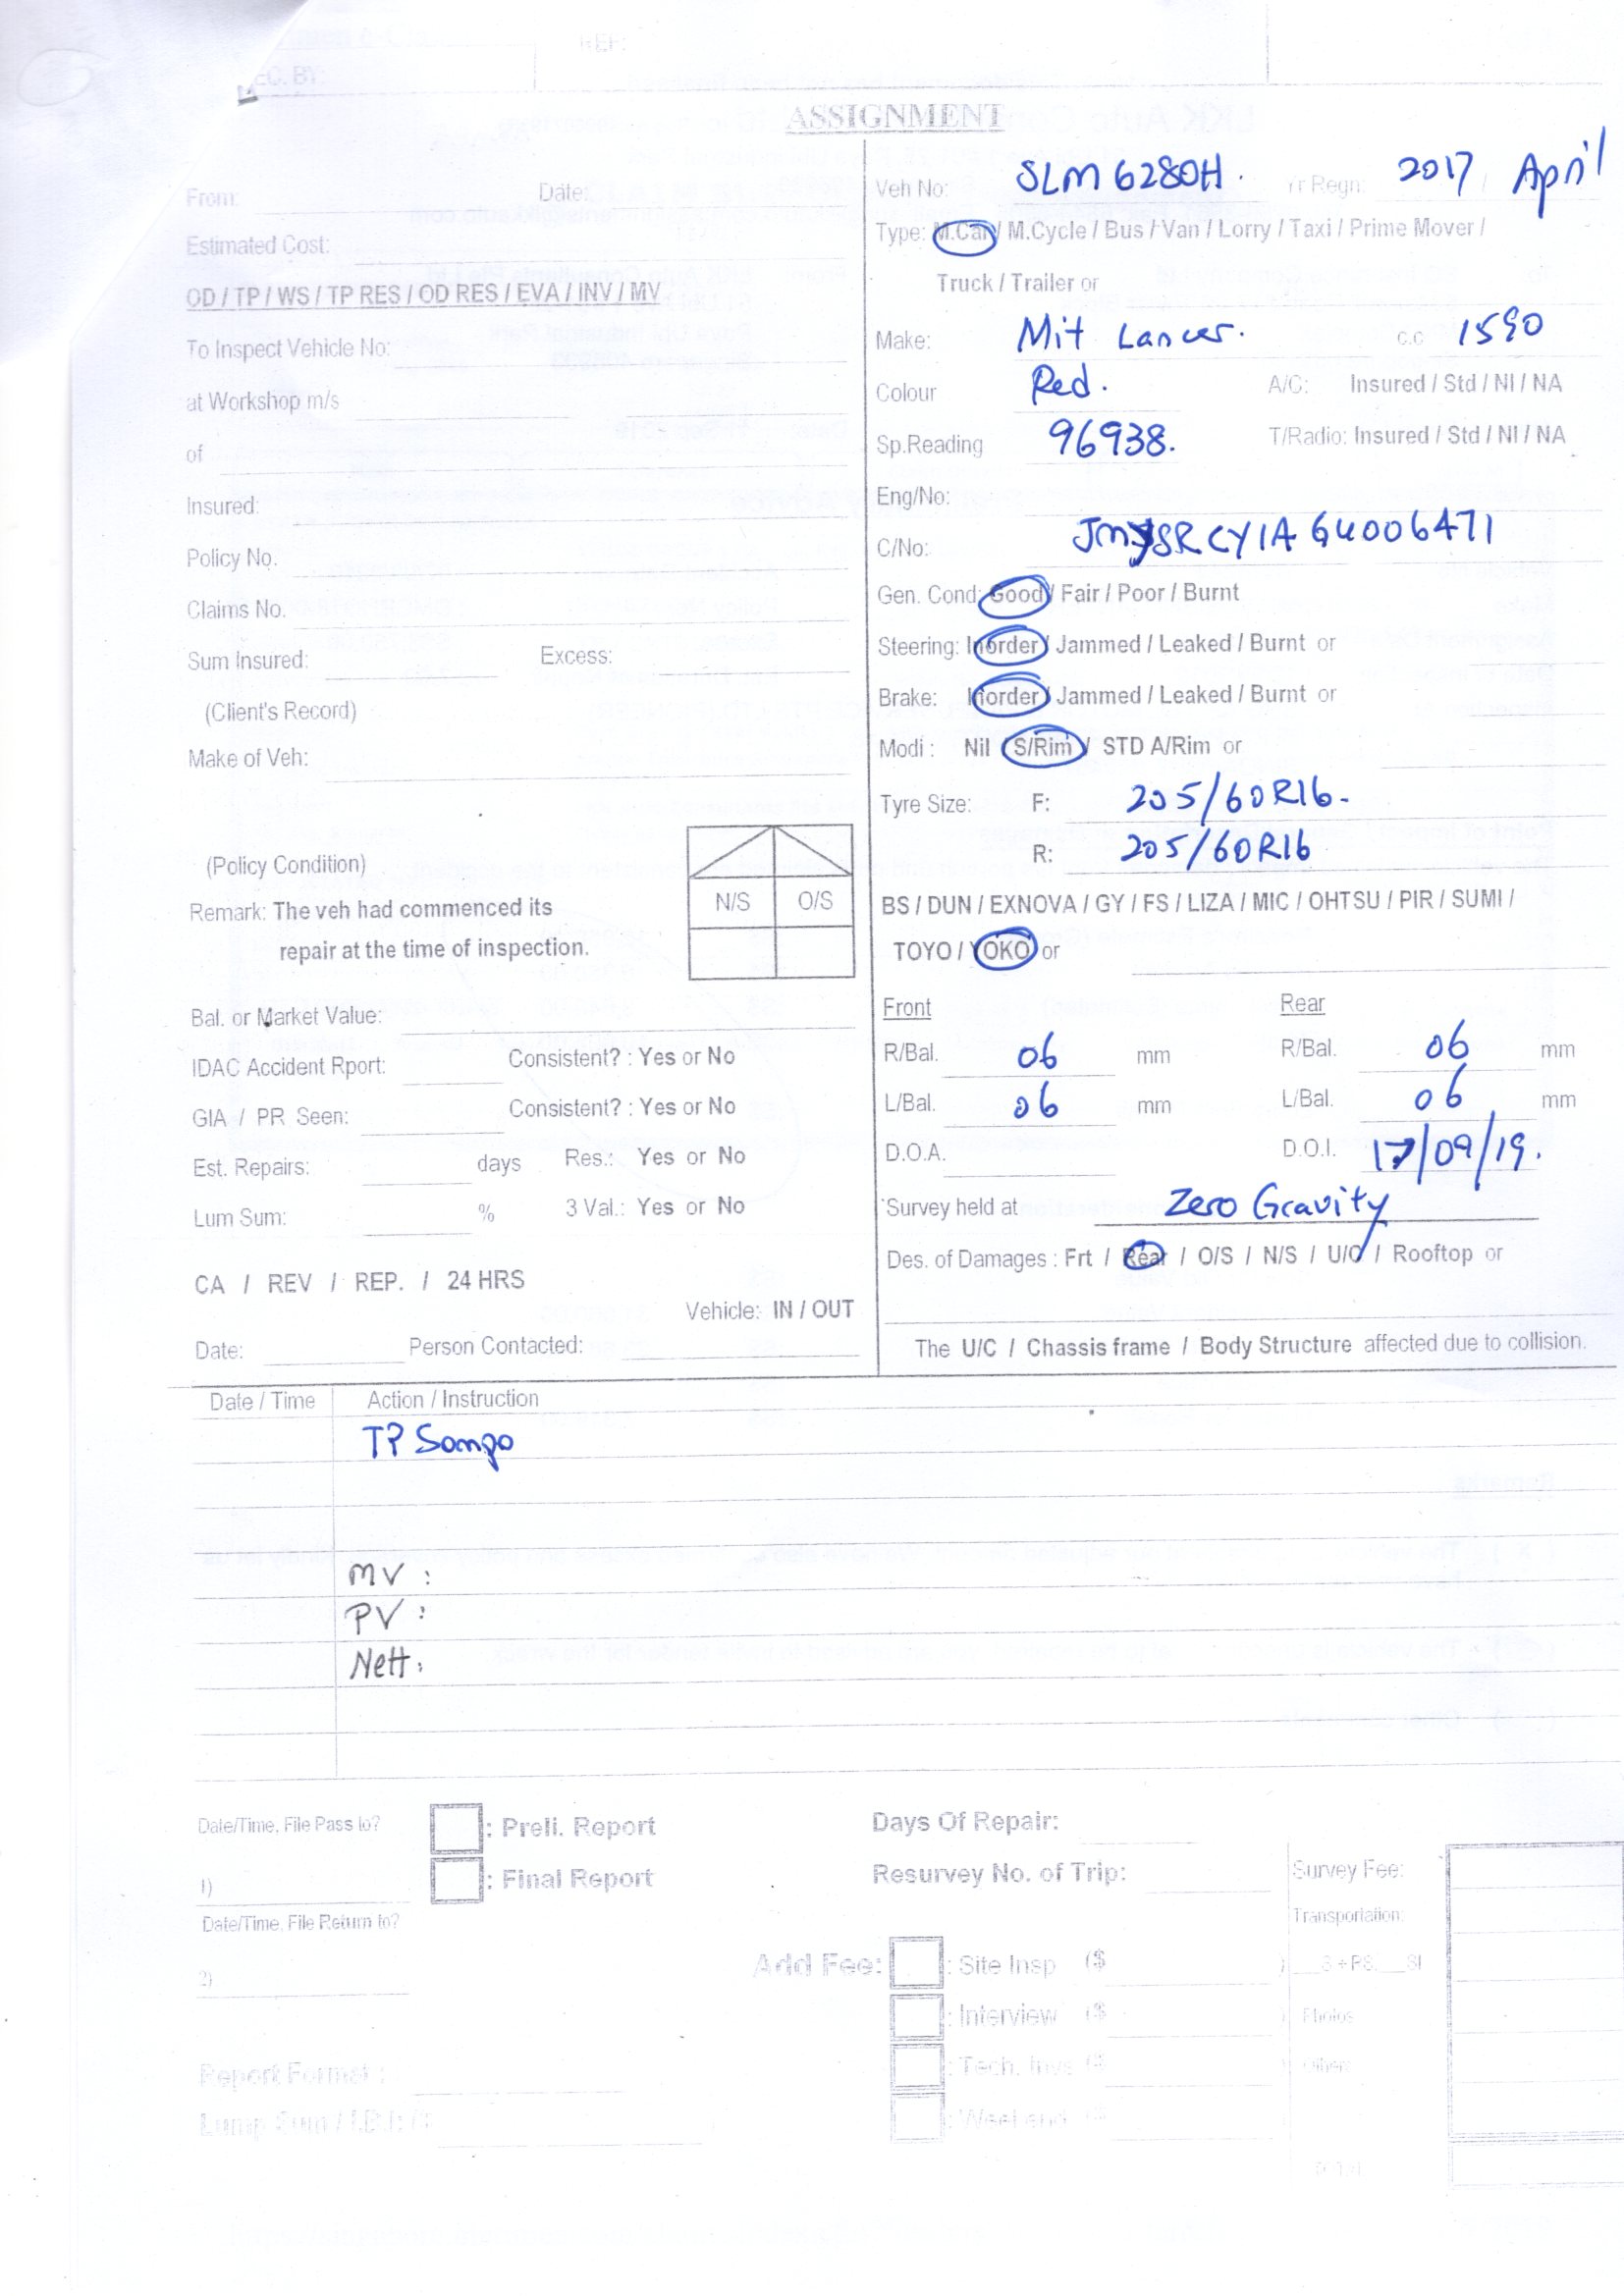 REF:
REC. BY:
ASSIGNMENT
From: Date:
Estimated Cost:
OD / TP / WS / TP RES / OD RES / EVA / INV / MV
To Inspect Vehicle No:
at Workshop m/s
of
Insured:
Policy No.
Claims No.
Sum Insured: Excess:
(Client's Record)
Make of Veh:
(Policy Condition)
N/S O/S
Remark: The veh had commenced its
repair at the time of inspection.
Bal. or Market Value:
IDAC Accident Rport: Consistent? : Yes or No
GIA / PR Seen: Consistent? : Yes or No
Est. Repairs: days Res.: Yes or No
Lum Sum: % 3 Val.: Yes or No
CA / REV / REP. / 24 HRS
Vehicle: IN / OUT
Date: Person Contacted:
Veh No: SLM 6280H. Yr Regn: 2017 / / April
Type: M.Car / M.Cycle / Bus / Van / Lorry / Taxi / Prime Mover /
Truck / Trailer or
Make: Mit Lancer. c.c 1590
Colour Red. A/C: Insured / Std / NI / NA
Sp.Reading 96938. T/Radio: Insured / Std / NI / NA
Eng/No:
C/No:
Gen. Cond: Good / Fair / Poor / Burnt
Steering: Inorder / Jammed / Leaked / Burnt or
Brake: Inorder / Jammed / Leaked / Burnt or
Modi : Nil / S/Rim / STD A/Rim or
Tyre Size: F: 205/60R16.
R: 205/60R16
BS / DUN / EXNOVA / GY / FS / LIZA / MIC / OHTSU / PIR / SUMI /
TOYO / YOKO or
Front Rear
R/Bal. 06 mm R/Bal. 06 mm
L/Bal. 06 mm L/Bal. 06 mm
D.O.A. D.O.I. 17/09/19.
Survey held at Zero Gravity
Des. of Damages : Frt / Rear / O/S / N/S / U/C / Rooftop or
The U/C / Chassis frame / Body Structure affected due to collision.
Date / Time Action / Instruction
TP Sompo
MV :
PV :
Nett :
Date/Time, File Pass to? : Preli. Report Days Of Repair:
1) : Final Report Resurvey No. of Trip: Survey Fee:
Date/Time, File Return to? Transportation:
2) Add Fee: : Site Insp ($ )
: Interview ($ ) Photos
Report Format : : Tech. Invs ($ ) Others
Lump Sum / I.B.I: ( : Weekend ($